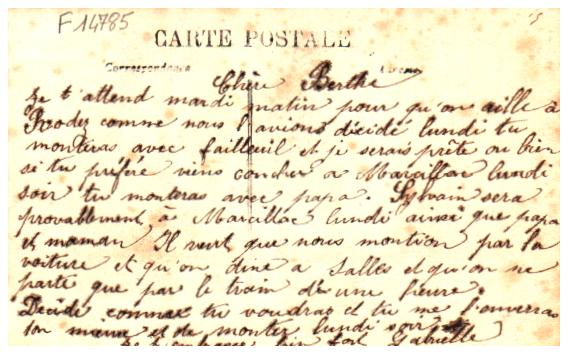 F 14785
CARTE POSTALE
Correspondance Adresse
Chère Berthe
Je t'attend mardi matin pour qu'on aille à
Roodez comme nous l'avions décidé lundi tu
monteras avec failleuil et je serais prête ou bien
si tu préfére viens coucher a Marcillac lundi
soir tu monteras avec papa. Sylvain sera
provablement à Marcillac lundi ainsi que papa
et maman Il veut que nous montion par la
voiture et qu'on dine a Salles et qu'on ne
parte que par le train de une heure.
Décide comme tu voudras et tu me l'enverras
ton et de montez lundi soir
Je t'embrasse bien fort Gabrielle